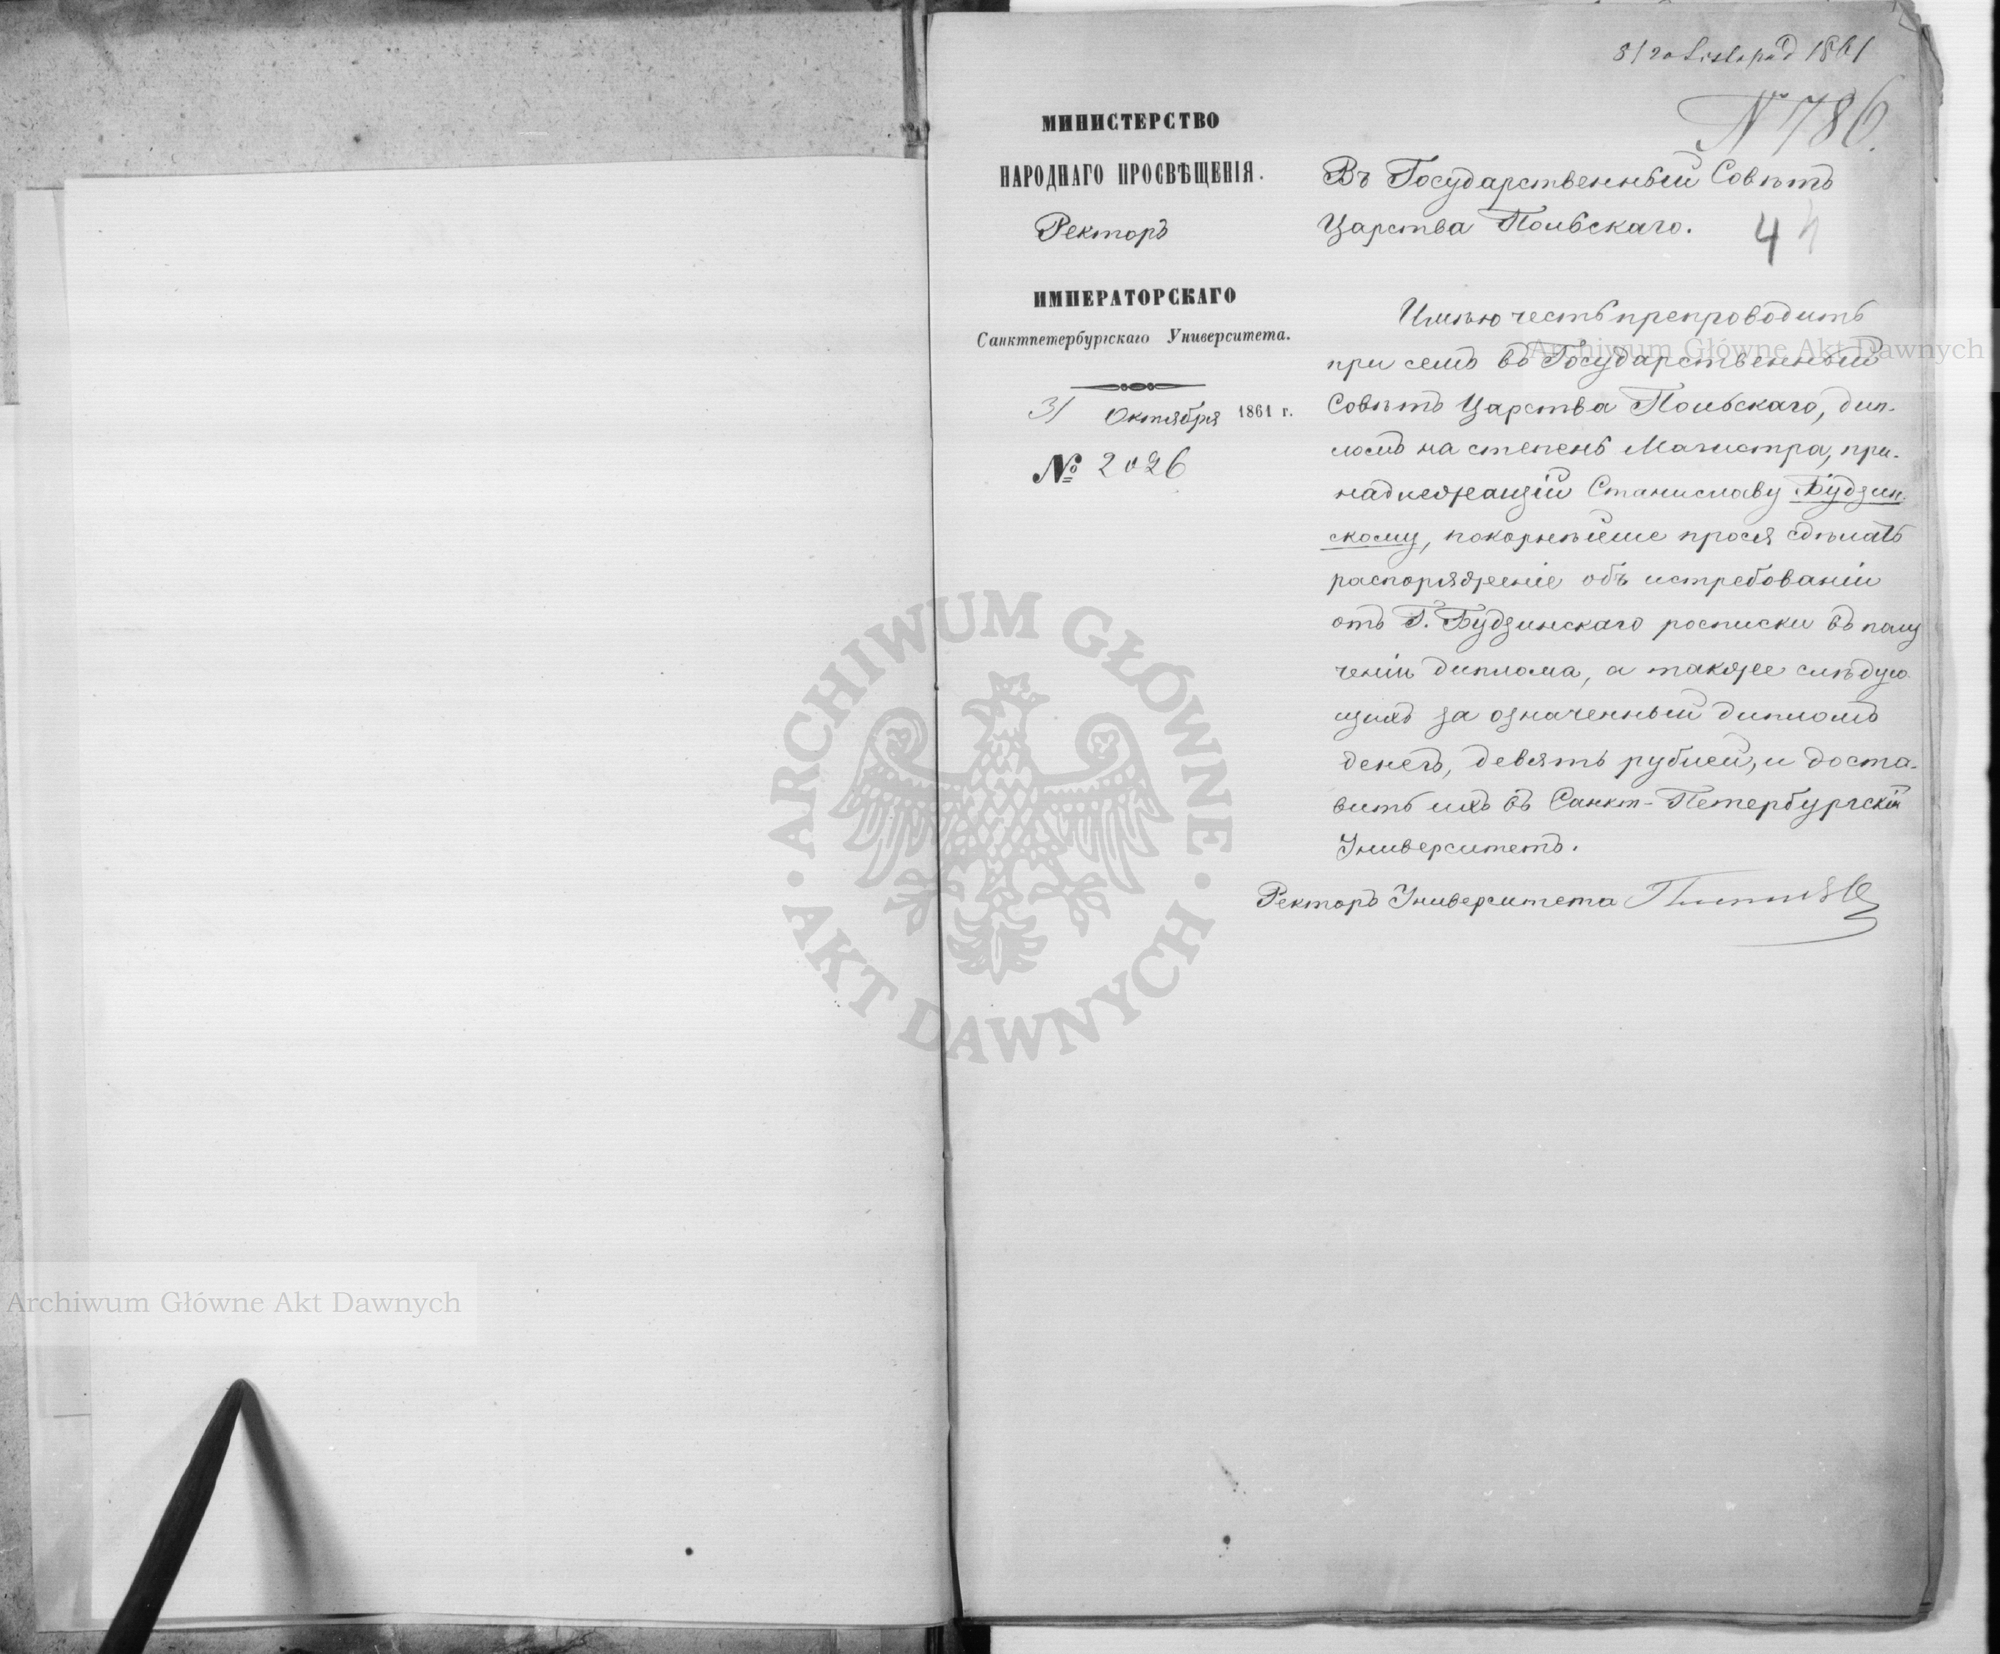 8/20 Listopad 1861
№ 786.
МИНИСТЕРСТВО
НАРОДНАГО ПРОСВѢЩЕНІЯ.
Ректоръ
ИМПЕРАТОРСКАГО
Санктпетербургскаго Университета.
31 Октября 1861 г.
№ 2026
Въ Государственный Совѣтъ
Царства Польскаго.
4 4
Имѣю честь препроводить
при семъ въ Государственный
Совѣтъ Царства Польскаго, дип-
ломъ на степень Магистра, при-
надлежащій Станиславу Будзин-
скому, покорнѣйше прося сдѣлать
распоряженіе объ истребованіи
отъ Г. Будзинскаго росписки въ полу
ченіи диплома, а также слѣдую
щихъ за означенный дипломъ
денегъ, девять рублей, и доста-
вить ихъ въ Санкт-Петербургскій
Университетъ.
Ректоръ Университета
ARCHIWUM GŁÓWNE
AKT DAWNYCH
Archiwum Główne Akt Dawnych
Archiwum Główne Akt Dawnych